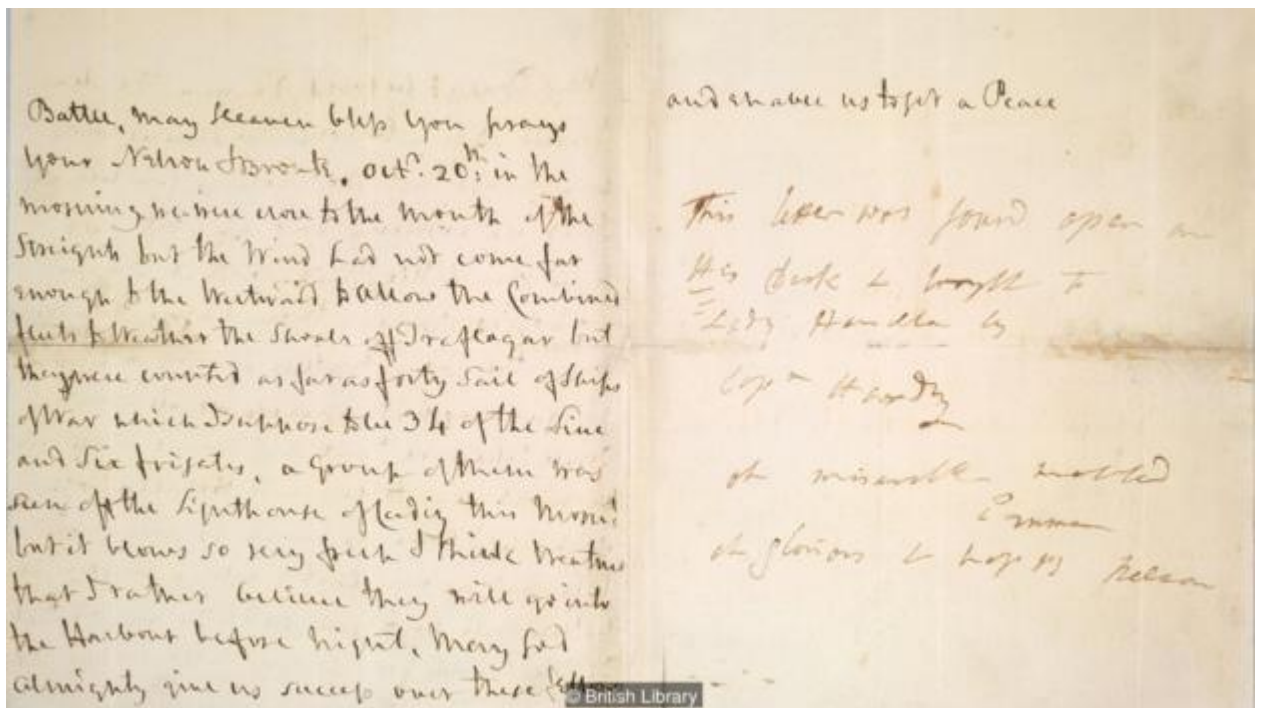 Battle, May Heaven bless You prays
Your Nelson & Bronte, Octr. 20th: in the
morning we were close to the Mouth of the
Streights but the Wind had not come far
enough to the Westward to allow the Combined
fleets to Weather the Shoals off Traflagar but
they were counted as far as forty Sail of Ships
of War which I suppose to be 34 of the Line
and Six frigates, a Group of them was
seen off the Lighthouse of Cadiz this Morng
but it blows so very fresh & thick Weather
that I rather believe they will go into
the Harbour before night, May God
Almighty give us success over these fellows
and enable us to get a Peace
This letter was found open on
His Desk & brought to
Lady Hamilton by
Capn Hardy
oh miserable wretched
Emma
oh glorious & happy Nelson
© British Library